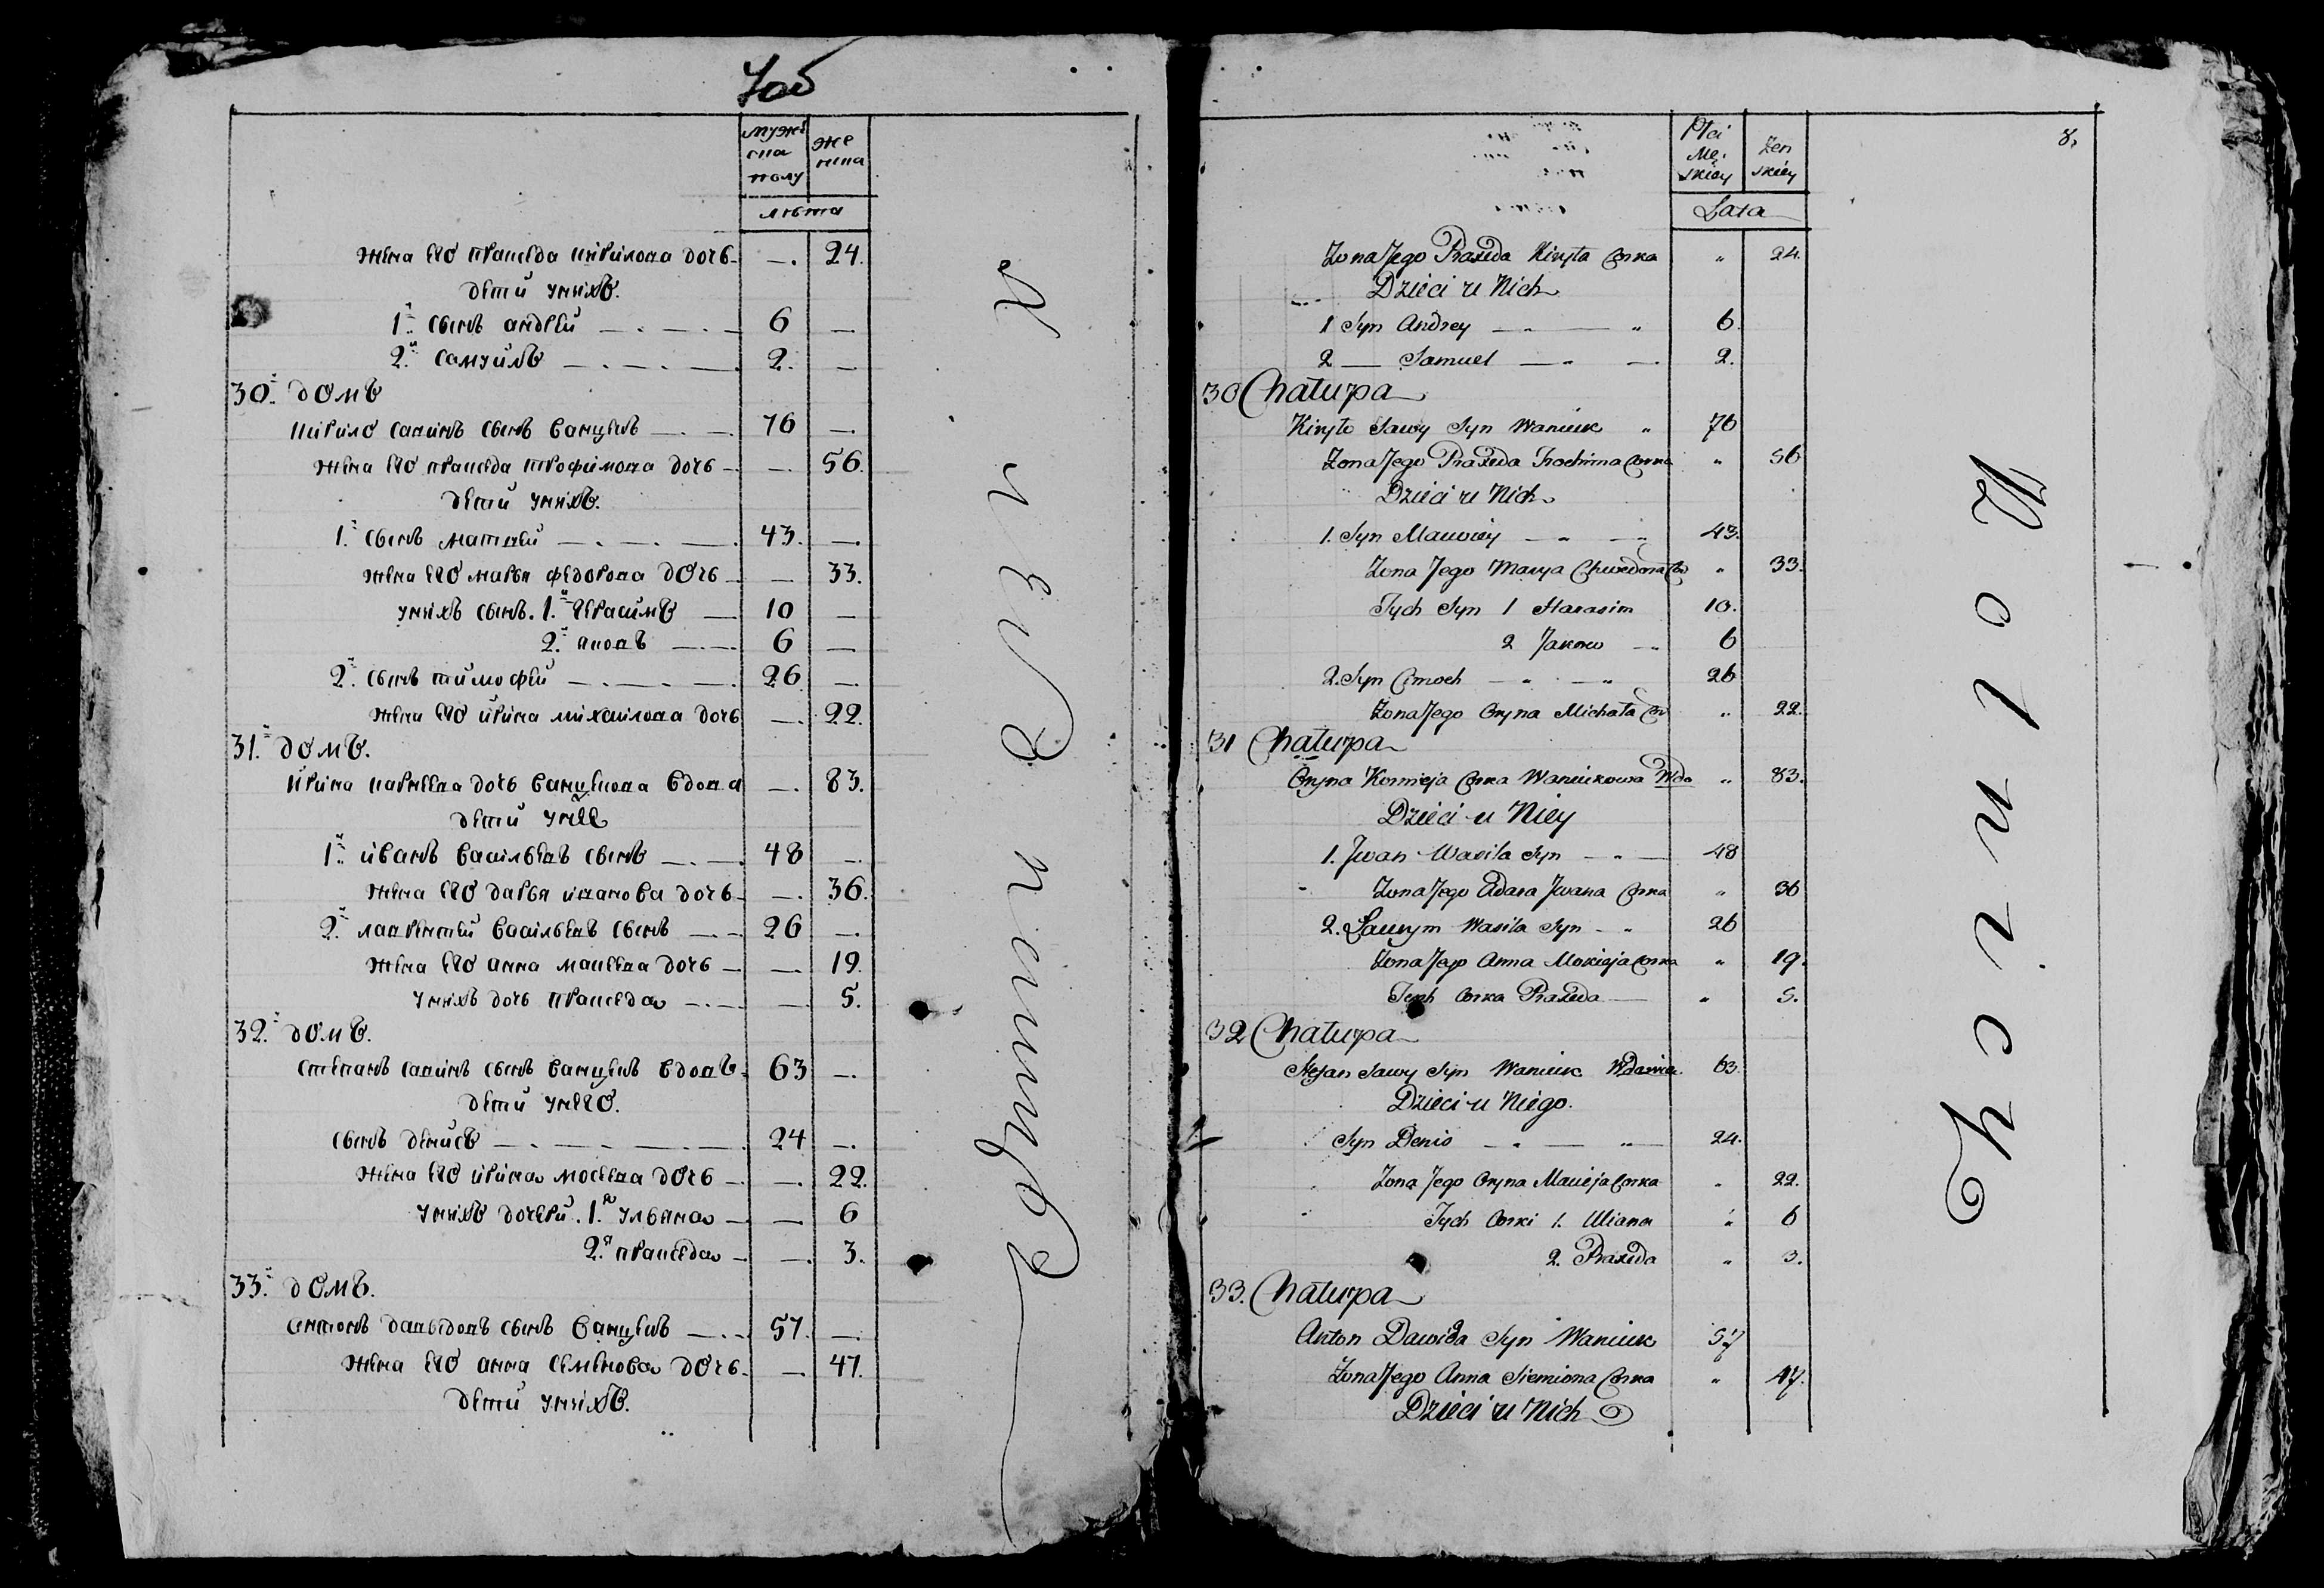 7об
мужеска полу
женска
лѣта
жена его праxеда кирилова дочь — 24.
дети унихъ.
1й сынъ андрей 6 —
2й самуилъ 2. —
30й домъ
кирило савинъ сынъ ванцукъ 76 —
жена его праxеда трофимова дочь — 56.
дети унихъ.
1й сынъ матвей 43. —
жена его марья федорова дочь — 33.
унихъ сынъ. 1й герасимъ 10 —
2й яковъ 6 —
2й сынъ тимофей 26 —
жена его ирина михаилова дочь — 22.
31й домъ.
ирина карнеева дочь ванцукова вдова — 83.
дети унее
1й иванъ васильевъ сынъ 48 —
жена его дарья иванова дочь — 36.
2й лаврентей васильевъ сынъ 26 —
жена его анна макеева дочь — 19.
унихъ дочь праxеда — 5.
32й домъ.
степанъ савинъ сынъ ванцукъ вдовъ 63 —
дети унего.
сынъ денисъ 24 —
жена его ирина мосеева дочь — 22.
унихъ дочери. 1я ульяна — 6
2я праxеда — 3.
33й домъ.
антонъ давыдовъ сынъ ванцукъ 57. —
жена его анна семенова дочь — 47.
дети унихъ.
8.
Płci Męskiey
Żenskiéy
Lata
Żona Jego Praxeda Kiryła Corka " 24.
Dzieci u Nich
1 Syn Andrey 6.
2 — Samuel 2.
30 Chałupa
Kiryło Sawy Syn Waniuk 76
Żona Jego Praxeda Trochima Corka " 56
Dzieci u Nich
1. Syn Mauwiey 43.
Żona Jego Marya Chwedora Cor " 33.
Tych Syn 1 Harasim 10.
2 Jakow 6
2. Syn Cimoch 26
Żona Jego Oryna Michała Cor " 22.
31 Chałupa
Oryna Kornieja Corka Waniukowa Wda " 83.
Dzieci u Niey
1. Jwan Wasila Syn 48
Żona Jego Adara Jwana Corka " 36
2. Ławrym Wasila Syn 26
Żona Jego Anna Mokieja Corka " 19.
Tych Corka Praxeda " 5.
32 Chałupa
Stefan Sawy Syn Waniuk Wdowiec 63.
Dzieci u Niego.
Syn Denis 24.
Żona Jego Oryna Macieja Corka " 22.
Tych Corki 1. Uliana " 6
2. Praxeda " 3.
33. Chałupa
Anton Dawida Syn Waniuk 57
Żona Jego Anna Siemiona Corka " 47.
Dzieci u Nich
Wolnicy